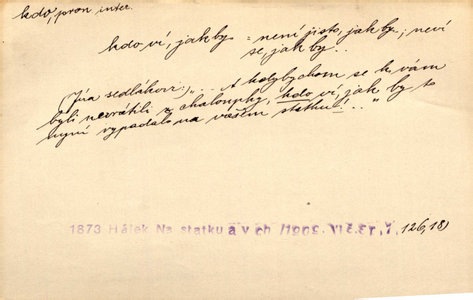 kdo, pron. inter.
kdo ví, jak by = není jisto, jak by.; neví
se, jak by..
(Jíra sedlákovi:) „.. A kdybychom se k vám
byli nevrátili z chaloupky, kdo ví, jak by to
nyní vypadalo na vašem statku!.."
1873 Hálek Na statku a v ch /1909. 126, 18)